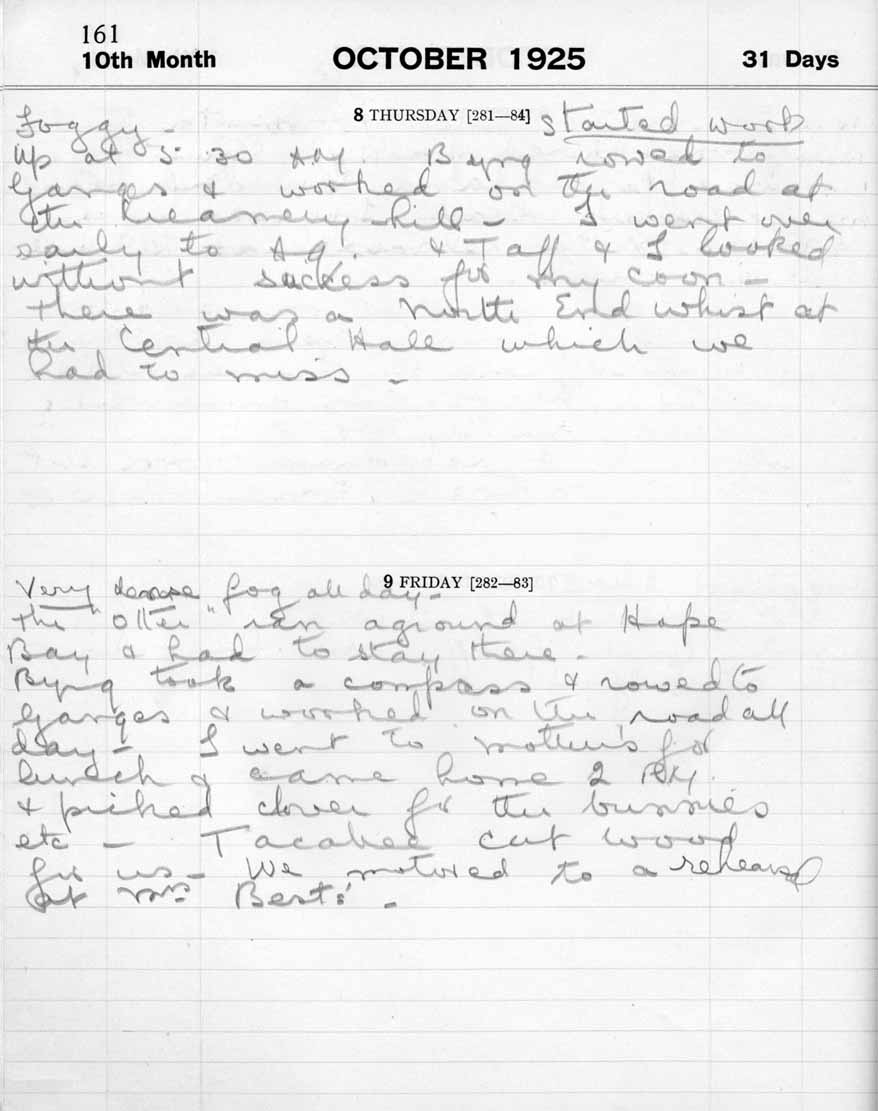 161
10th Month OCTOBER 1925 31 Days
8 THURSDAY [281—84]
Foggy - started work
Up at 5.30 AM. Byng rowed to
Ganges & worked on the road at
the Creamery hill - I went over
early to A.g. & Taff & I looked
without success for my coon -
There was a North End Whist at
the Central Hall which we
had to miss -
9 FRIDAY [282—83]
Very dense fog all day -
the "Otter" ran aground at Hope
Bay & had to stay there -
Byng took a compass & rowed to
Ganges & worked on the road all
day - I went to mother's for
lunch & came home 2 PM.
& picked clover for the bunnies
etc - cut wood
for us - We motored to a rehearsal
at Mrs Bests' -